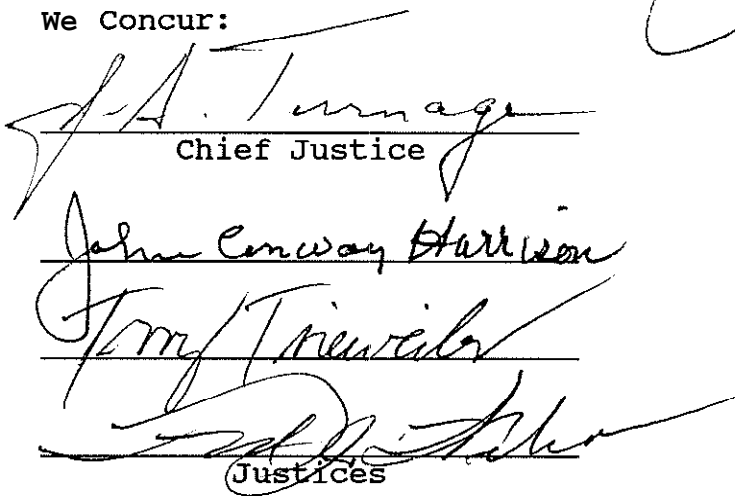 We Concur:
J. A. Turnage
Chief Justice
John Conway Harrison
Terry Trieweiler
Justices